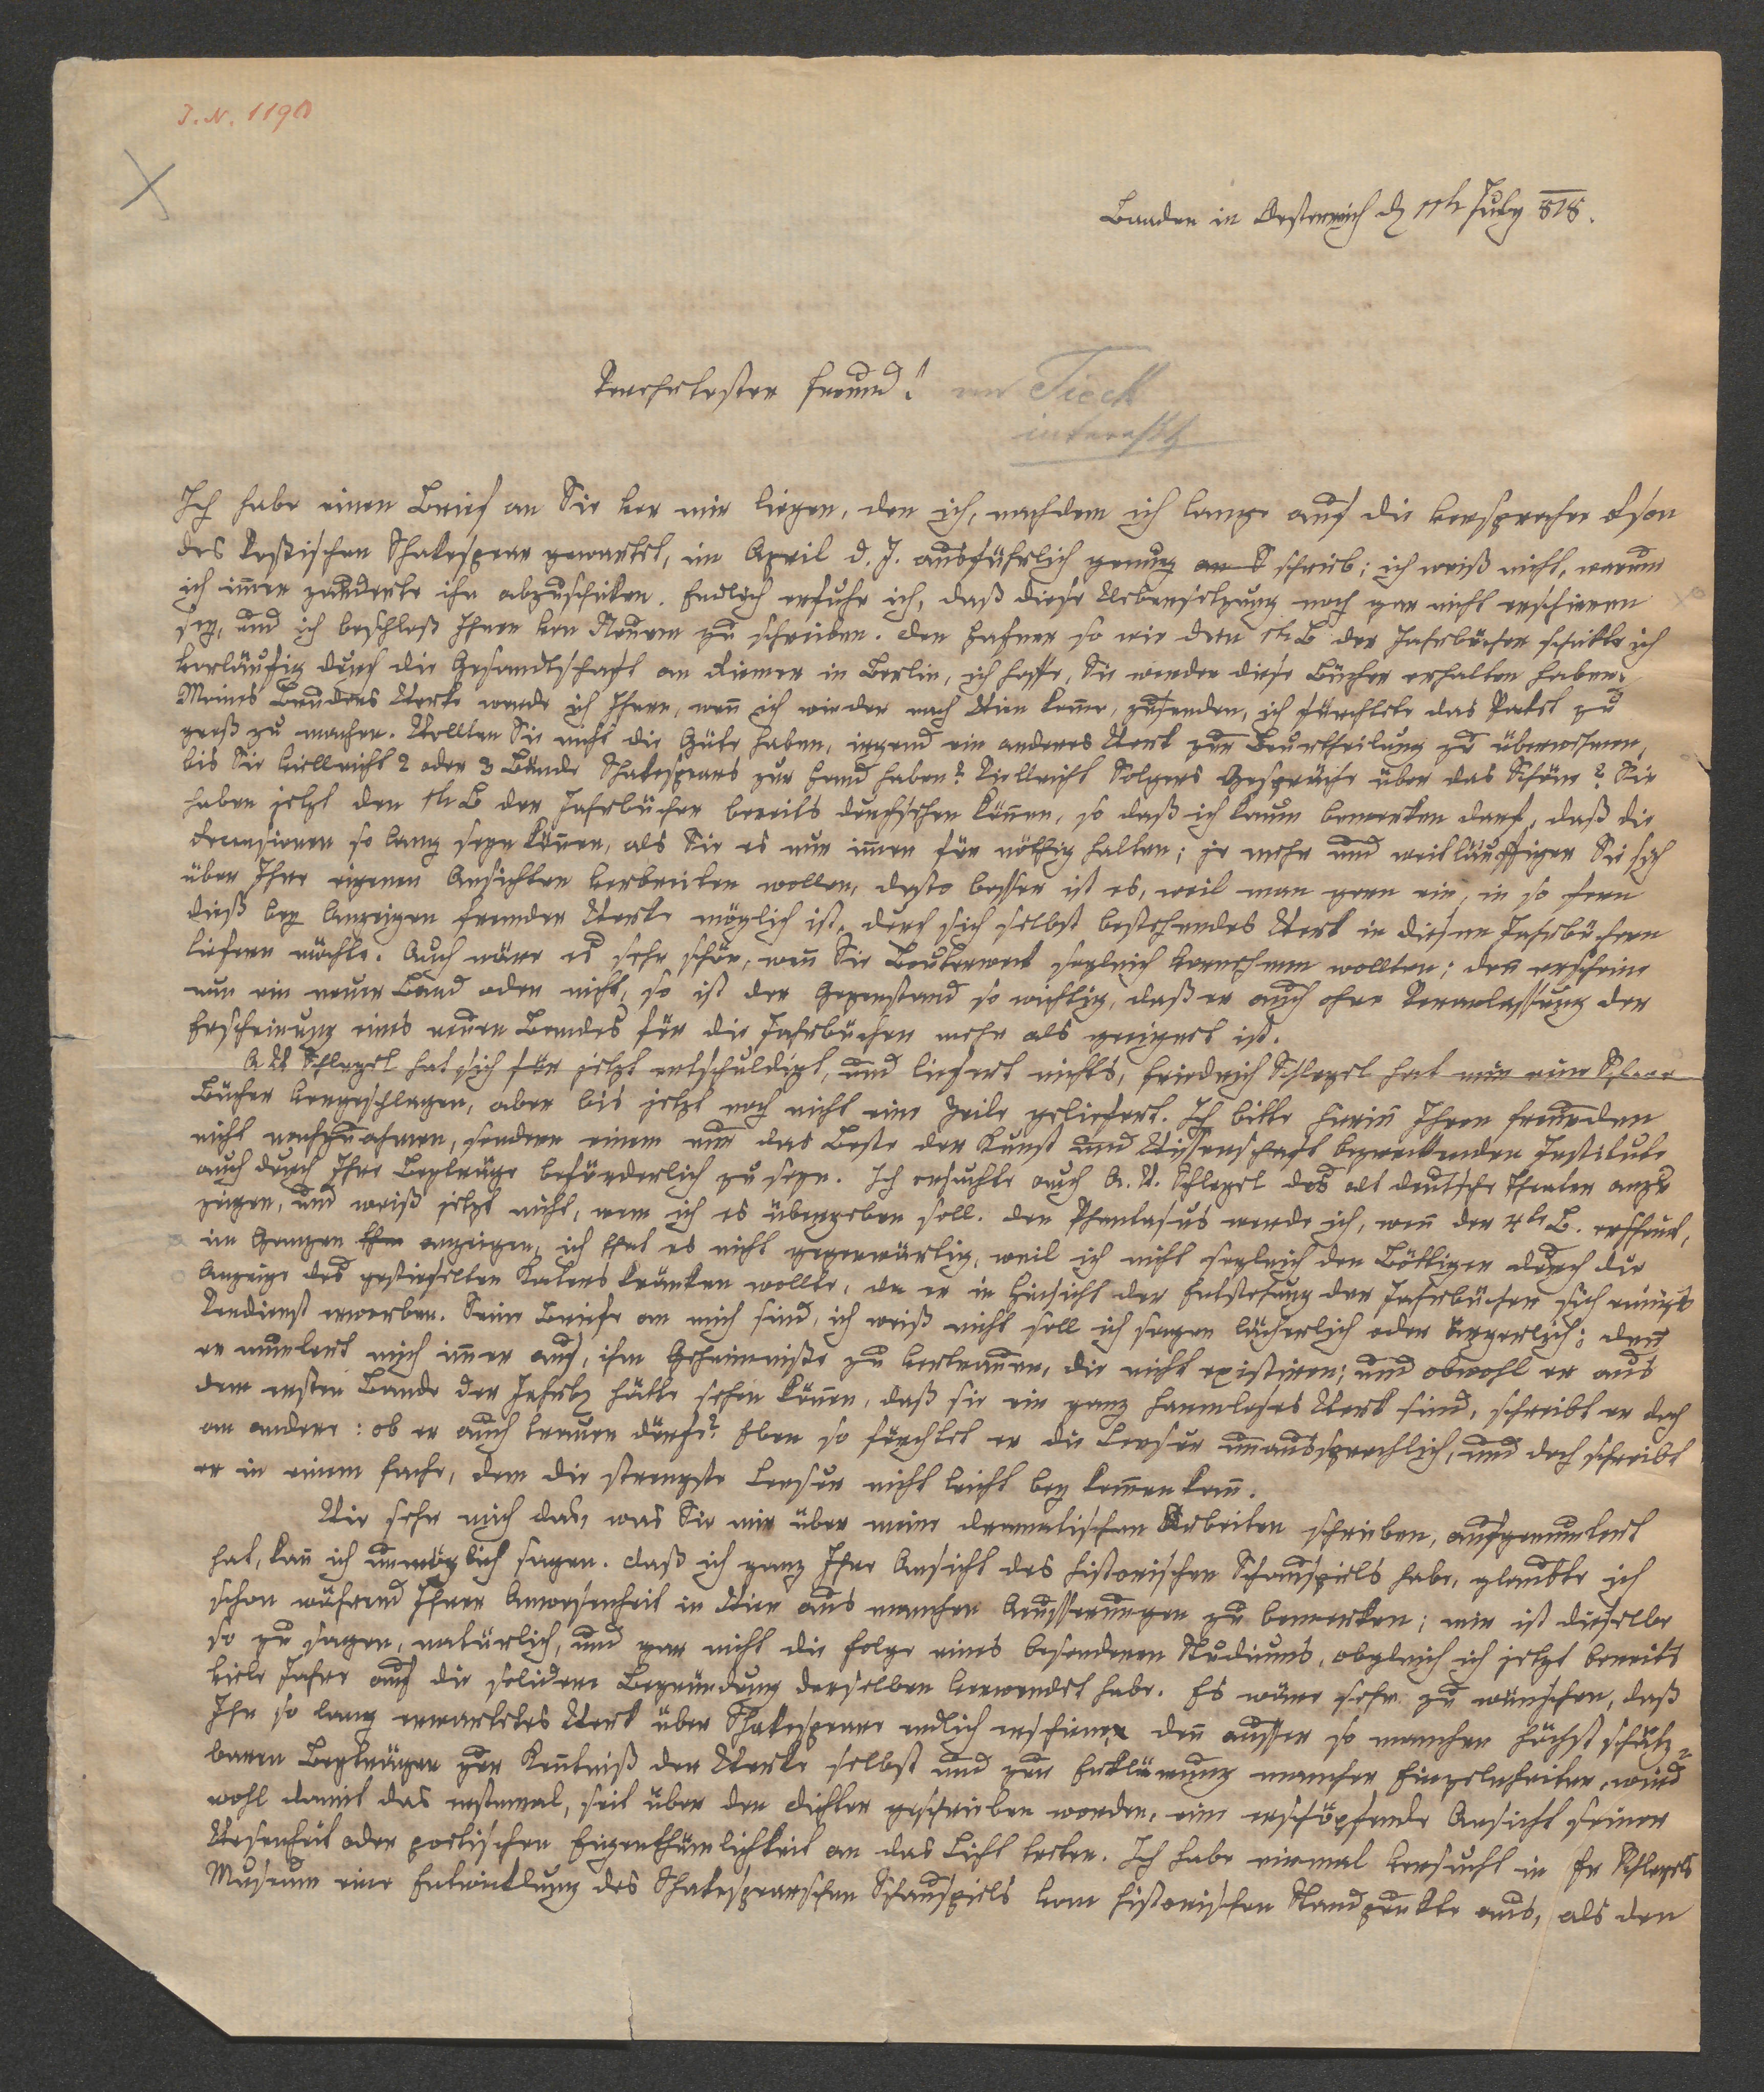 J. N. 1190
Baaden in Oesterreich d 11t July 818.
Verehrtester Freund!
an Tieck
interessth
Ich habe einen Brief an Sie vor mir liegen, den ich, nachdem ich lange auf die versprochen
des Voßischen Shakespear gewartet, im April d. J. ausführlich genug schrieb; ich weiß nicht, warum
ich im̄er zauderte ihn abzuschicken. Endlich erfuhr ich, daß diese Uebersetzung noch gar nicht erschienen
sey, und ich beschloß Ihnen von Neuem zu schreiben. Den Hafner so wie den 1t B der Jahrbücher schickte ich
vorläufig durch die Gesandtschaft an Reimer in Berlin, ich hoffe, Sie werden diese Bücher erhalten haben.
Meines Bruders Werke werde ich Ihnen, wen̄ ich wieder nach Wien kom̄e, zusenden, ich fürchtete das Paket zu
groß zu machen. Wollten Sie nicht die Güte haben, irgend ein anderes Werk zur Beurtheilung zu übernehmen,
bis Sie vielleicht 2 oder 3 Bände Shakespears zur Hand haben? Vielleicht Solgers Gespräche über das Schöne? Sie
haben jetzt den 1t B der Jahrbücher bereits durchsehen kön̄en, so daß ich kaum bemerken darf, daß die
Recensionen so lang seyn kön̄en, als Sie es nur im̄er für nöthig halten; je mehr und weitläuffiger Sie sich
über Ihre eigenen Ansichten verbreiten wollen, desto besser ist es, weil man gern ein, in so fern
dieß bey Anzeigen fremder Werke möglich ist, durch sich selbst bestehendes Werk in diesen Jahrbüchern
liefern möchte. Auch wäre es sehr schön, wen̄ Sie Bouterweck sogleich vornehmen wollten; den̄ erscheine
nun ein neuer Band oder nicht, so ist der Gegenstand so wichtig, daß er auch ohne Veranlassung der
Erscheinung eines neuen Bandes für die Jahrbücher mehr als geeignet ist.
A W Schlegel hat sich für jetzt entschuldigt, und liefert nichts, Friedrich Schlegel hat mir eine Schaar
Bücher vorgeschlagen, aber bis jetzt noch nicht eine Zeile geliefert. Ich bitte hierin̄ Ihren Freunden
nicht nachzuahmen, sondern einem nur das Beste der Kunst und Wissenschaft bezweckenden Institute
auch durch Ihre Beyträge beförderlich zu seyn. Ich ersuchte auch A. W. Schlegel das alt deutsche Theater anzu
zeigen, und weiß jetzt nicht, wem ich es übergeben soll. Den Phantasus werde ich, wen̄ der 4te B. erscheint,
im Ganzen anzeigen, ich that es nicht gegenwärtig, weil ich nicht sogleich den Böttiger durch die
Anzeige des gestiefelten Katers kränken wollte, da er in Hinsicht der Entstehung der Jahrbücher sich einiges
Verdienst erworben. Seine Briefe an mich sind, ich weiß nicht soll ich sagen lächerlich oder ärgerlich; den̄
er muntert mich im̄er auf, ihm Geheimniße zu vertrauen, die nicht existiren; und obwohl er aus
dem ersten Bande der Jahrb hätte sehen kön̄en, daß sie ein ganz harmloses Werk sind, schreibt er doch
an andere: ob er auch trauen dürfe? Eben so fürchtet er die Censur unaussprechlich, und doch schreibt
er in einem Fache, dem die strengste Censur nicht leicht bey kom̄en kan̄.
Wie sehr mich das, was Sie mir über meine dramatischen Arbeiten schrieben, aufgemuntert
hat, kan̄ ich unmöglich sagen. Daß ich ganz Ihre Ansicht des historischen Schauspiels habe, glaubte ich
schon während Ihrer Anwesenheit in Wien aus manchen Aeusserungen zu bemerken; mir ist dieselbe
so zu sagen, natürlich, und gar nicht die Folge eines besonderen Studiums, obgleich ich jetzt bereits
viele Jahre auf die solidere Begründung derselben verwendet habe. Es wäre sehr zu wünschen, daß
Ihr so lang erwartetes Werk über Shakespeare endlich erschiene, den̄ ausser so manchen höchst schätz=
baren Beyträgen zur Ken̄tniß der Werke selbst und zur Erklärung mancher Einzelnheiten, wird
wohl damit das erstemal, seit über den Dichter geschrieben worden, eine erschöpfende Ansicht seiner
Wesenheit oder poetischen Eigenthümlichkeit an das Licht treten. Ich habe einmal versucht in Fr Schlegels
Museum eine Entwicklung des Shakespearschen Schauspiels vom historischen Standpunkte aus, als den